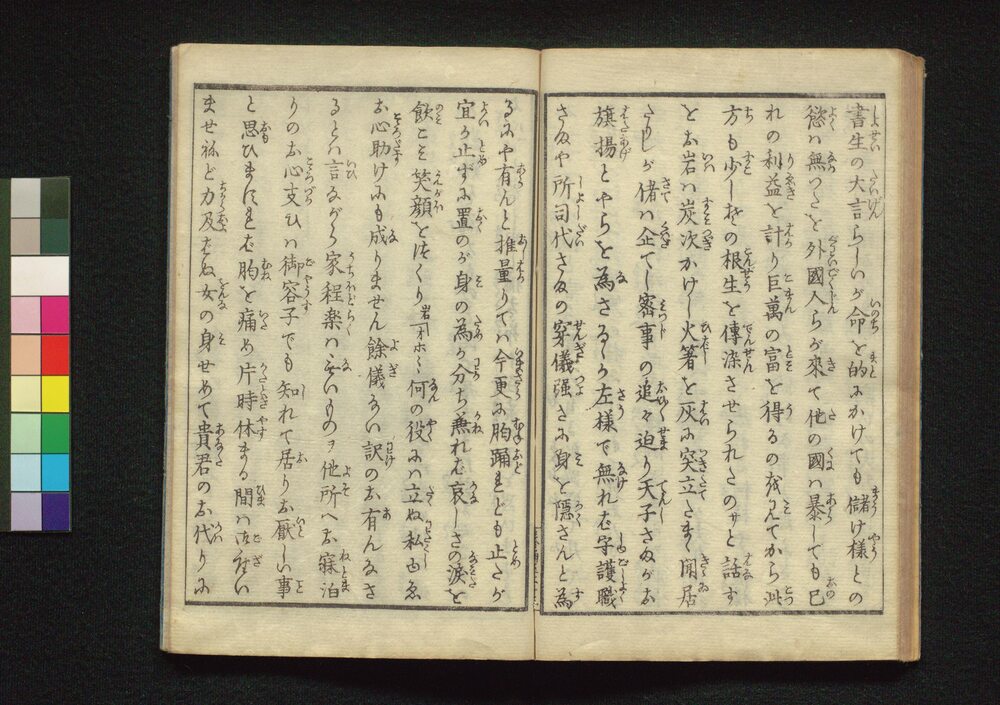 書生の大言らしいが命を的にかけても儲け様との
慾は無つたを外國人らが來て他の國は暴しても己
れの利益を計り巨萬の富を得るのを見てから此
方も少し其の根生を傳染させられたのサと話す
をお岩は炭次かけし火箸を灰に突立たまゝ聞居
たりしが偖は企てし密事の追々迫り天子さまがお
旗揚とやらを為さるゝか左様で無れば守護職
さまや所司代さまの穿儀強さに身を隠さんと為
るにや有んと推量りては今更に胸踊れども止たが
宜か止ずに置のが身の為か分ち兼れば哀しさの涙を
飲こみ笑顔をつくり岩「ホヽ何の役には立ぬ私ゆゑ
お心助けにも成りません餘儀ない訳のお有んなさ
るとは言ながら家程楽はないものヲ他所へお寐泊
りのお心支ひは御容子でも知れて居りお厭しい事
と思ひますれば胸を痛め片時休まる間は御座い
ませねど力及ばぬ女の身せめて貴君のお代りに